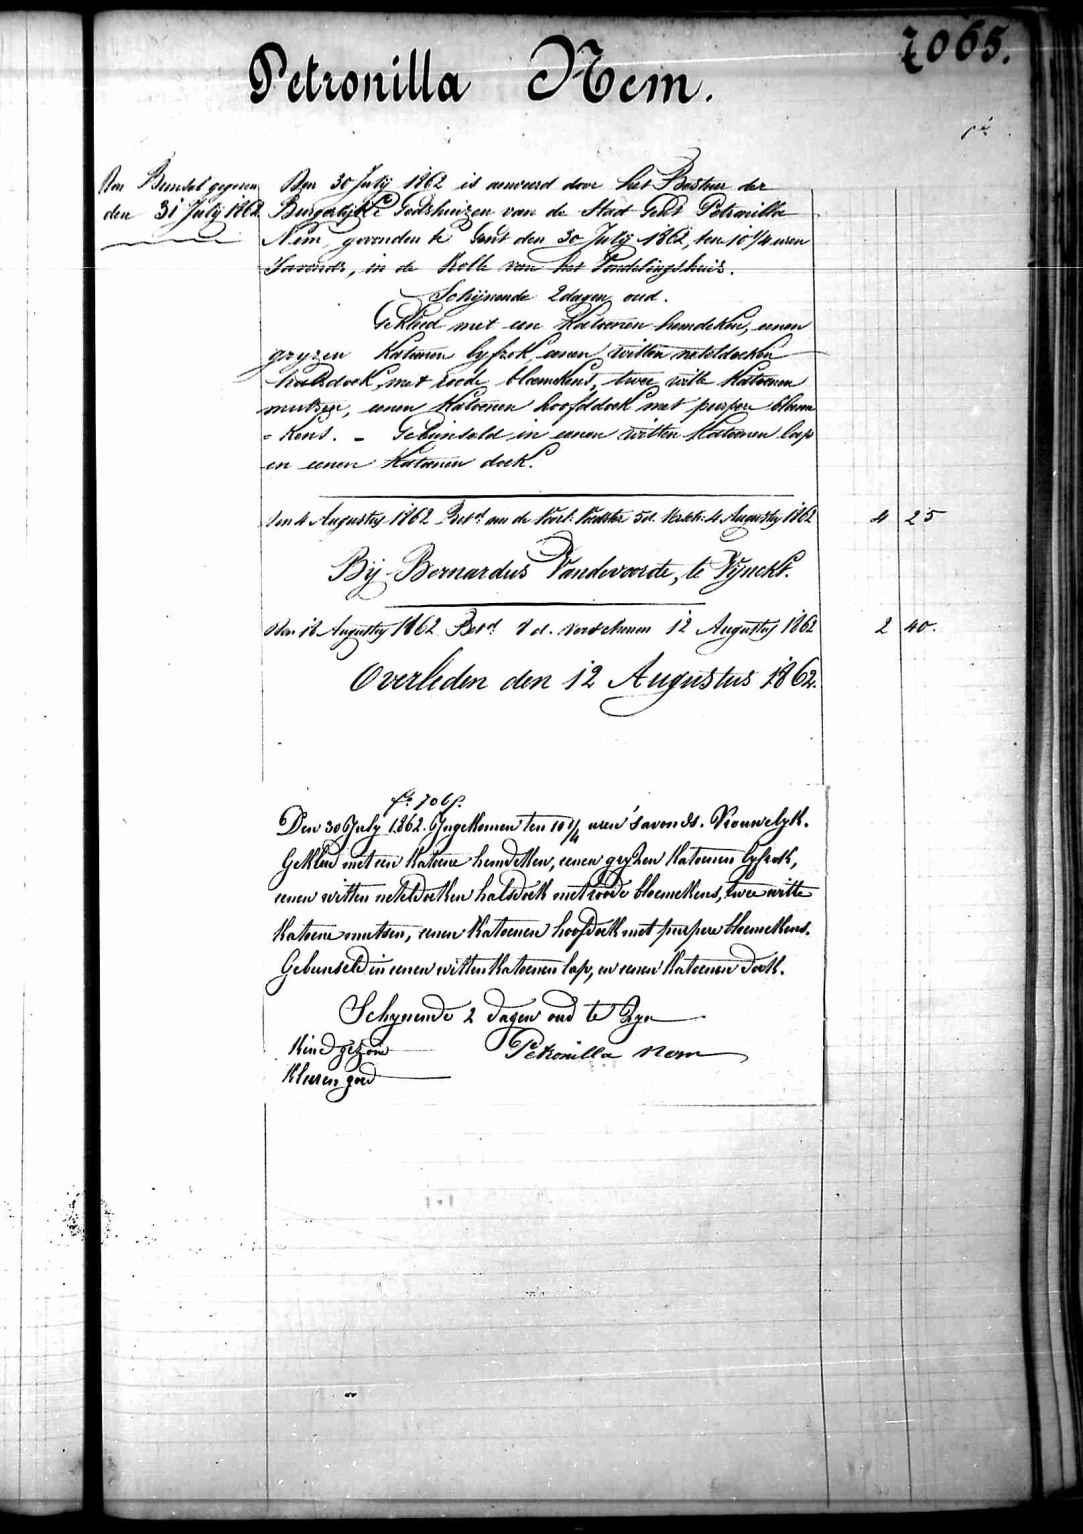 7065.
Petronilla Nem.
Den Bunsel gegeven
den 31 July 1862
Den 30 July 1862 is aenveerd door het Bestuer der
Burgerlijke Godshuizen van de Stad Gent Petronilla
Nem, gevonden te Gent den 30 July 1862, ten 10 1/4 uren
's avonds, in de Rolle van het Vondelingshuis.
Schijnende 2 dagen oud.
Gekleed met een Katoenen hemdeken, eenen
gryzen Katoenen lyfrok, eenen witten neteldoeken
halsdoek, met roode bloemkens, twee witte Katoenen
mutsen, eenen Katoenen hoofddoek met purpere bloem
= kens. – Gebunseld in eenen witten Katoenen lap
en eenen Katoenen doek.
Den 4 Augusty 1862 Bet.d aan de Voorl: Voedster 5 d. Versch: 4 Augusty 1862 4 25
Bij Bernardus Vandevoorde, te Vynckt.
Den 18 Augusty 1862 Bet.d 8 d. verschenen 12 Augusty 1862 2 40.
Overleden den 12 Augustus 1862.
f.o 7065.
Den 30 July 1862. Ingekomen ten 10 1/4 uren 's avonds. Vrouwelyk.
Gekleed met een Katoene hemdeken, eenen gryzen Katoenen lyfrok,
eenen witten neteldoeken halsdoek met roode bloemekens, twee witte
Katoene mutsen, eenen Katoenen hoofdoek met purpere bloemekens.
Gebunseld in eenen witten Katoenen lap, en eenen Katoenen doek.
Schynende 2 dagen oud te zyn
Kind gezond
Petronilla Nem
Kleeren goed